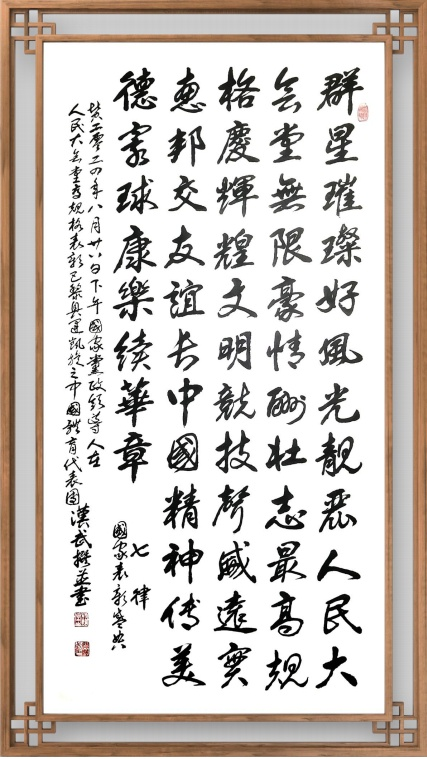 群星璀璨好風光靚麗人民大
会堂無限豪情酬壮志最高規
格慶輝煌文明競技聲威遠實
惠邦交友誼長中國精神傳美
德寰球康樂續華章
七律
國家表彰盛典
二零二四年八月廿日下午國家黨政領導人在
人民大会堂高規格表彰巴黎奧運凱旋之中國體育代表團 漢武撰並書